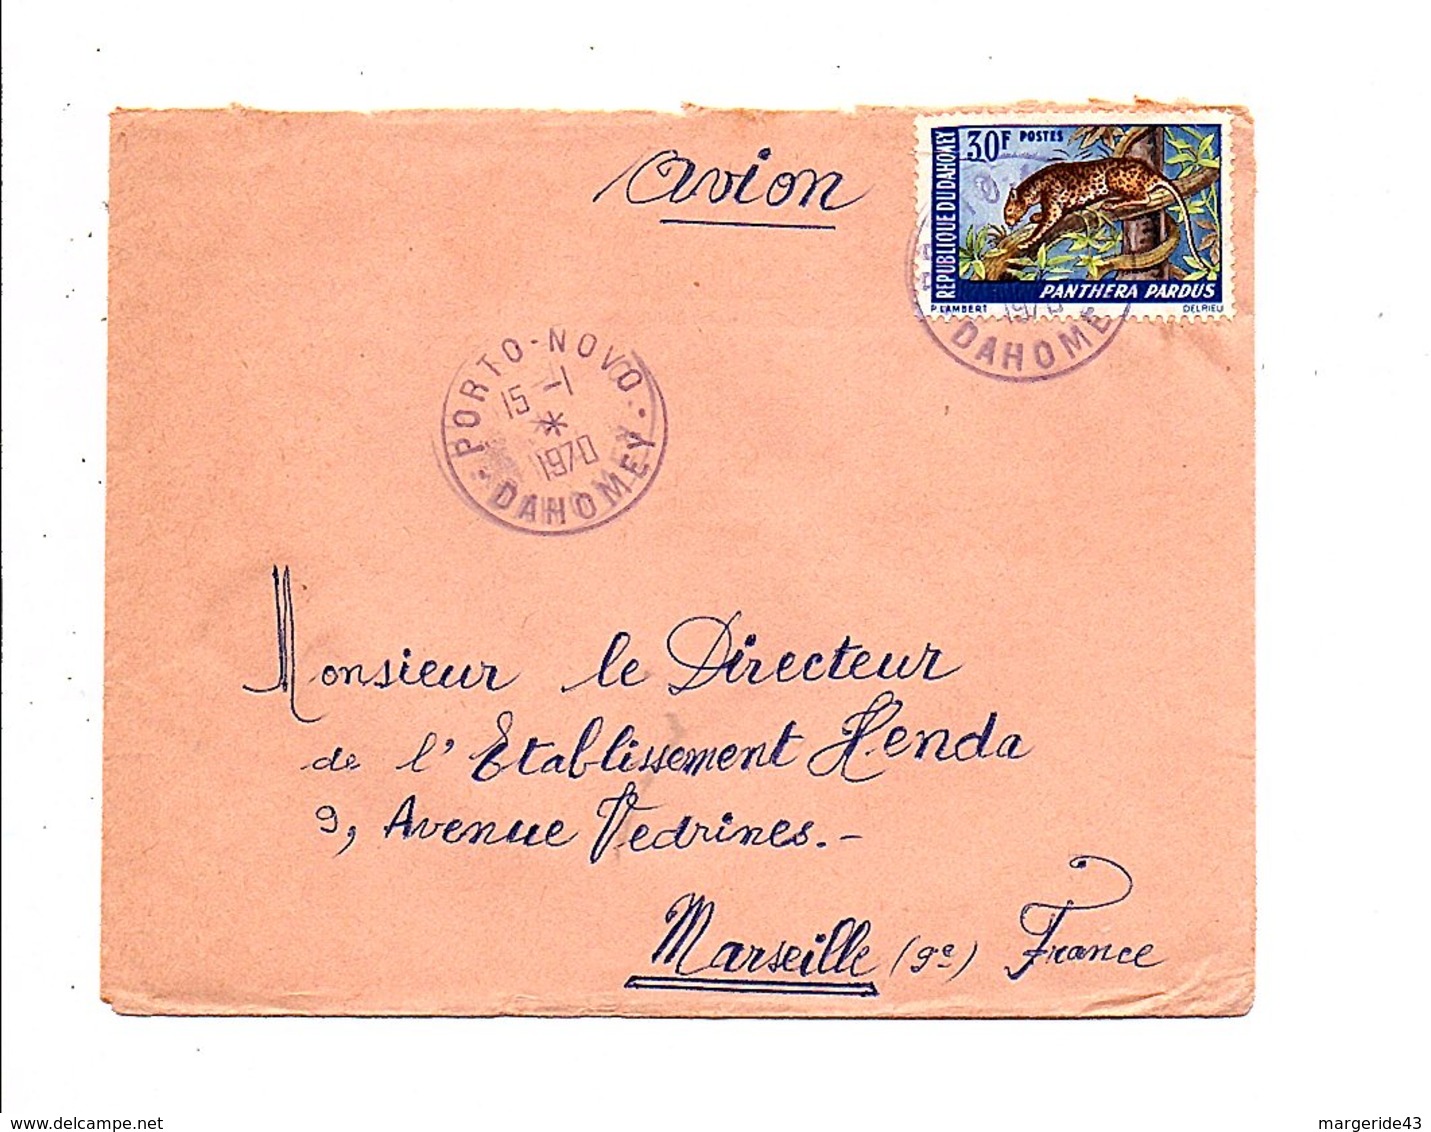 Avion
REPUBLIQUE DU DAHOMEY
30F POSTES
PANTHERA PARDUS
P. LAMBERT DELRIEU
1970
DAHOME
PORTO-NOVO
15-1
1970
DAHOMEY
Monsieur le Directeur
de l'Etablissement Henda
9, Avenue Vedrines.-
Marseille (9e) France
www.delcampe.net
margeride43